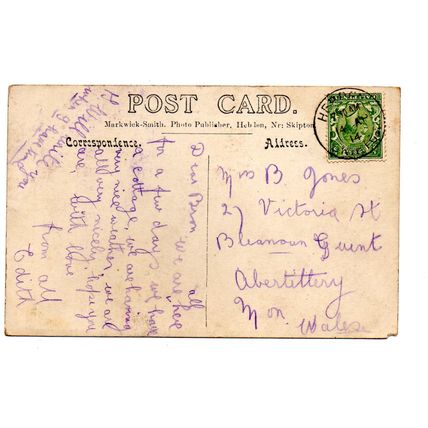 POST CARD.
Markwick-Smith. Photo Publisher, Hebden, Nr: Skipton
Correspondence.
Address.
Dear Bron we are all
for a few days we have here
a cottage, we are having
very nice weather, we are
all very nicely, hope you
all are with love
from all
Edith
Mrs B Jones
27 Victoria St
Gwent
Abertittery
Mon.
Wales